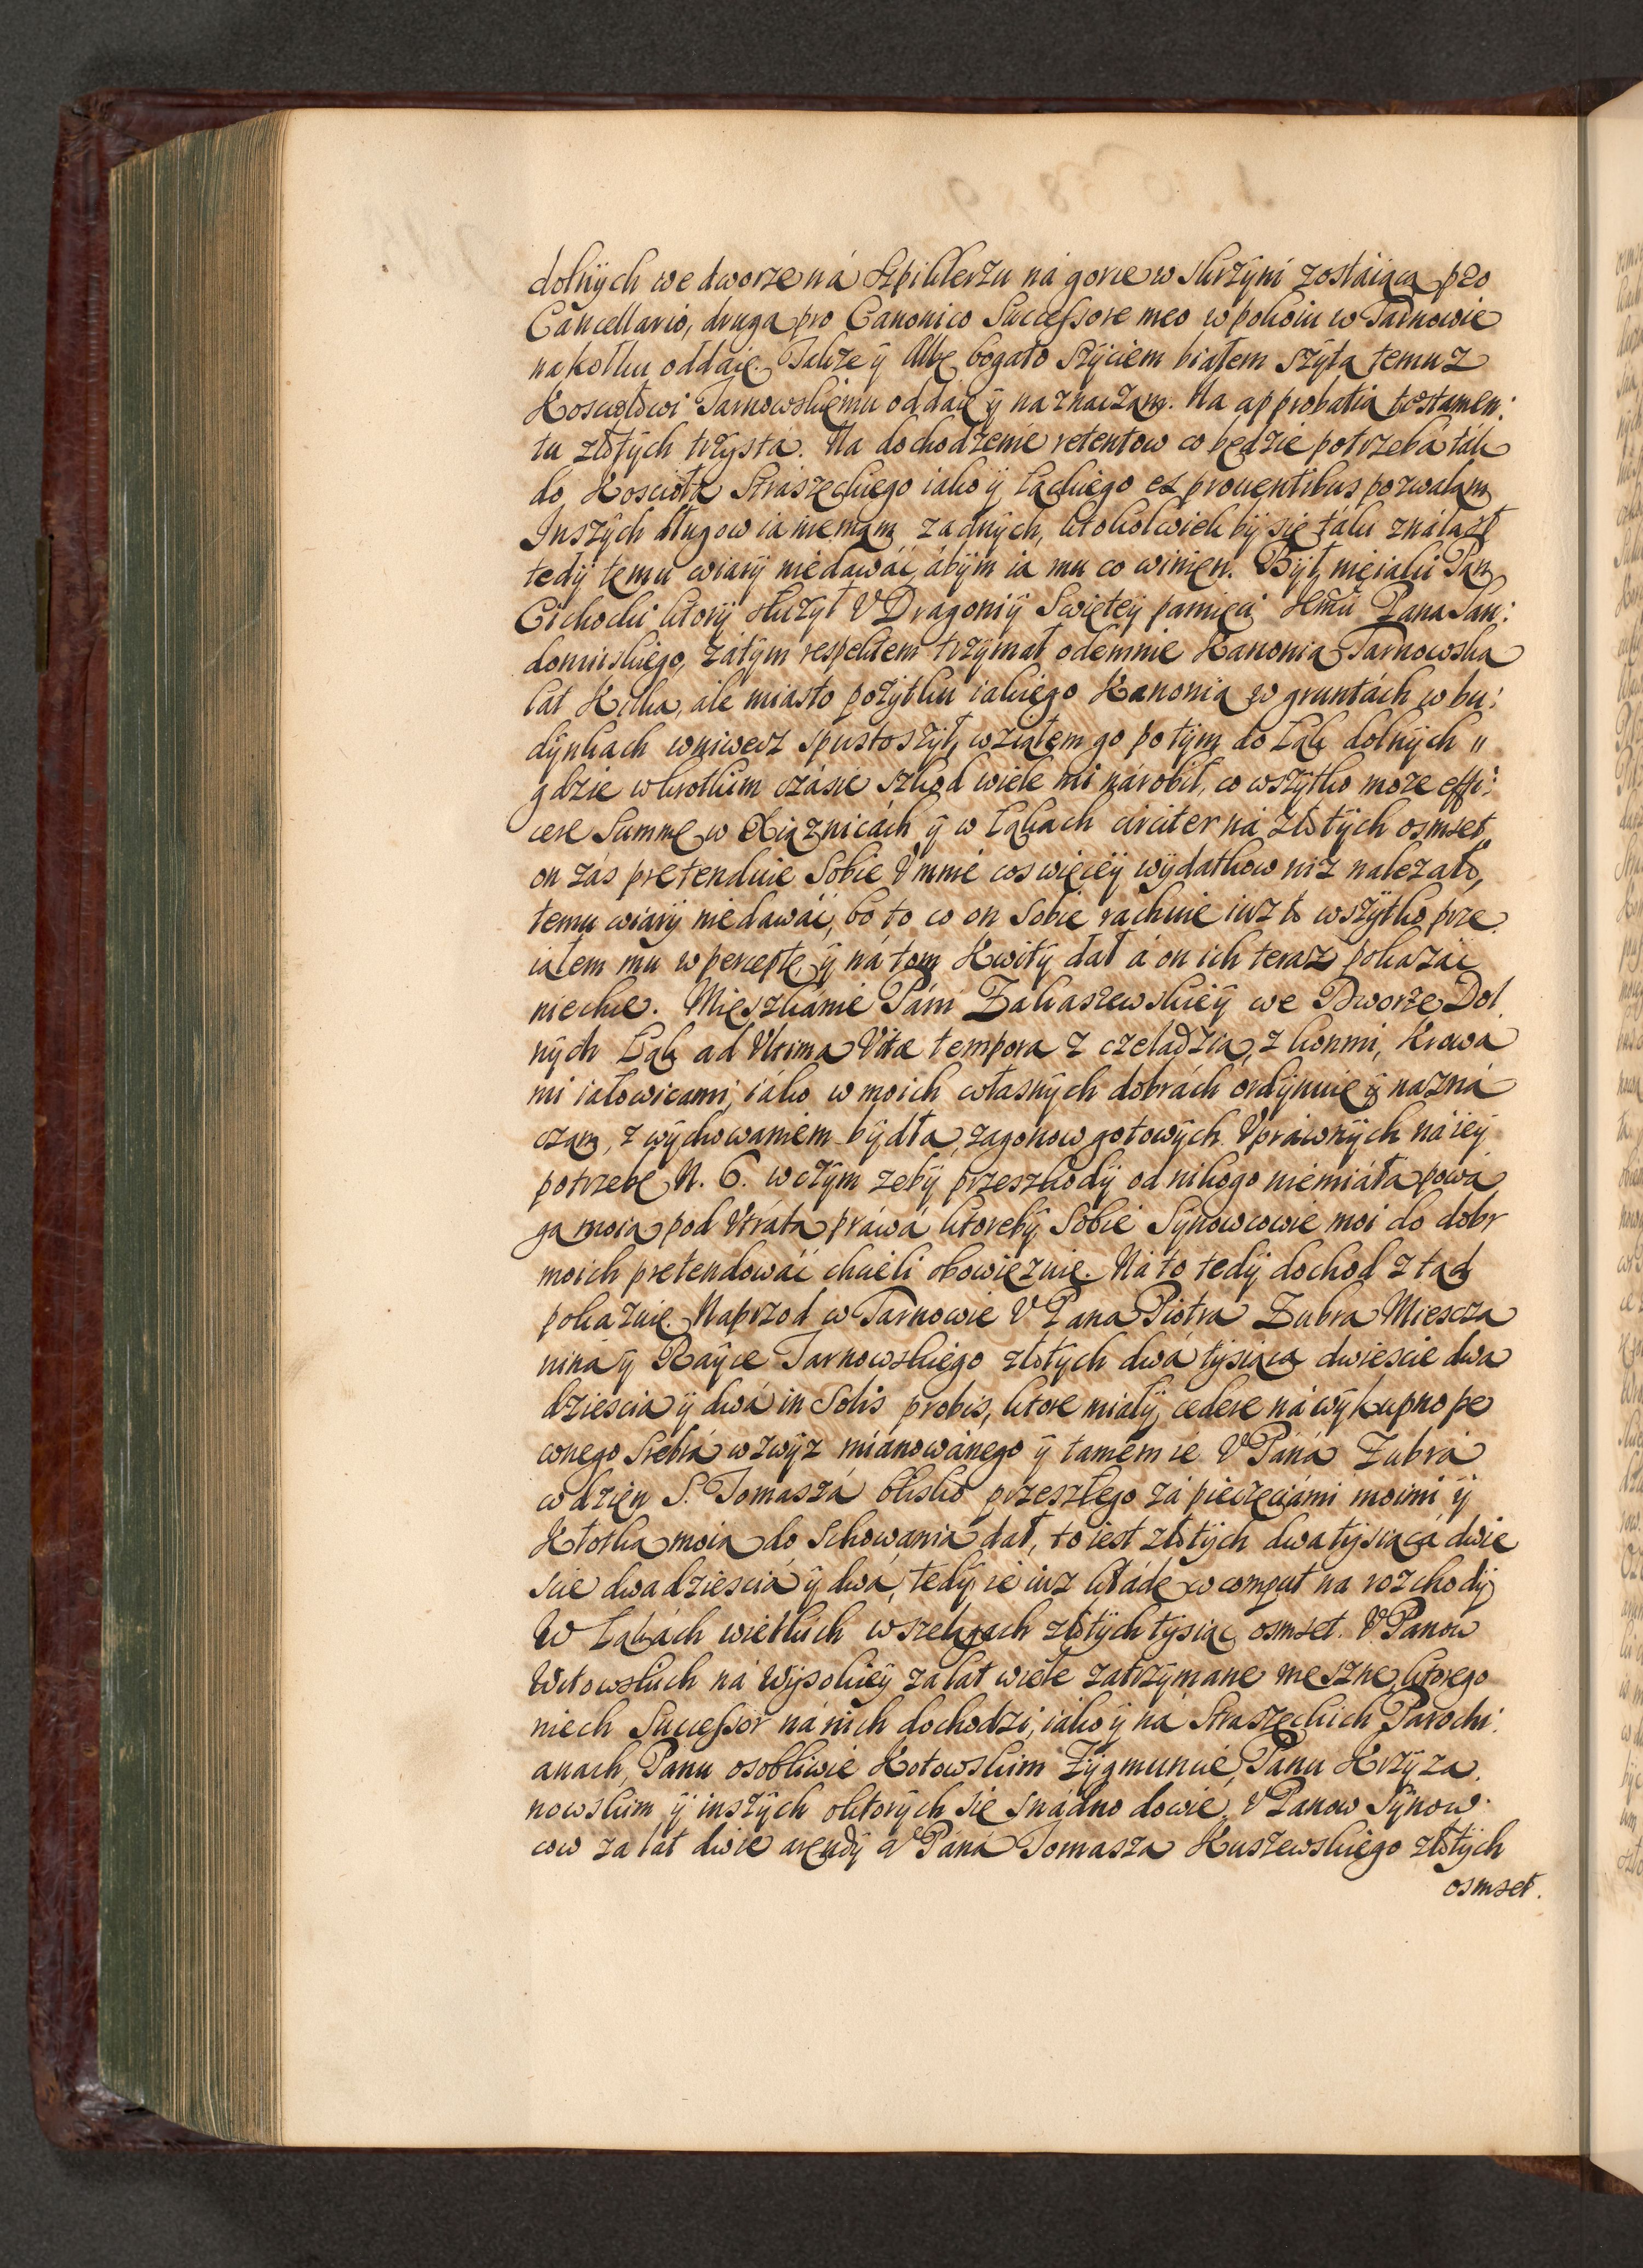 dolnÿch we dworze ná szpiklerzu ná gorze w skrzÿni zostáiącą pro
Cancellario, druga pro Canonico Successore meo w pokoiu w Tarnowie
na kołku oddaię. Także ÿ Albę bogato szÿciem białem szÿtą temuz
Kosciołowi Tarnowskiemu oddaię ÿ naznaczam. Na approbatią testamen:
tu złotÿch trzÿstá. Na dochodzenie retentow co będzie potrzebá ták
do Kosciołá Straszęckiego iako ÿ Łąckiego ex prouentibus pozwalam
Inszÿch długow ia niemam zadnÿch, ktokolwiek bÿ się táki ználazł
tedÿ temu wiarÿ niedawáć, ábÿm ia mu co winien. Bÿł nieiaki Pan
Cichocki ktorÿ słuzÿł V Dragoniÿ Swiętey pamięci Jmci Pana San:
domirskiego, zátÿm respektem trzÿmał odemnie Kanonią Tarnowską
lat Kilka, ale miásto pozÿtku iakiego Kanonią w gruntách w bu:
dÿnkach wniwecz spustoszÿł, wziąłem go potÿm do Łąk dolnÿch
gdzie w krotkim czásie szkod wiele mi nárobił, co wszÿtko moze effi:
cere Summę w Xiąznicách ÿ w Łąkach circiter ná złotÿch osmset,
on zás pretenduie sobie V mnie cos więceÿ wÿdatkow niz nalezało,
temu wiarÿ niedawáć, bo to co on sobie rachuie iuz to wszÿtko prze
iąłem mu w perceptę ÿ ná tom Kwitÿ dał á on ich teraz pokazáć
niechce. Mięszkánie Páni Zakaszewskieÿ we Dworze Dol
nÿch Łąk ad Vltima Vitæ tempora z czeladzią, z konmi, Krowa
mi iałowicami, iáko w moich własnÿch dobrách ordÿnuię ÿ nazná
czam, z wÿchowaniem bÿdła, zagonow gotowÿch Vprawnÿch ná ieÿ
potrzebę N. 6. w czÿm zebÿ przeszkodÿ od nikogo niemiáła powá
gą moią pod Vtratą práwá ktorebÿ sobie Sÿnowcowie moi do dobr
moich pretendowáć chcieli obowięzuię. Ná to tedÿ dochod ztąd
pokazuię. Naprzod w Tarnowie V Pana Piotra Zubra Miescza
nina ÿ Raÿce Tarnowskiego złotÿch dwá tysiąca dwiescie dwa
dziescia ÿ dwá in Solis probis, ktore miałÿ cedere ná wÿkupno pe
wnego srebrá wzwÿz mianowánego ÿ tamem ie V Páná Zubrá
w dzien S. Tomaszá blisko przeszłego zá pieczęciámi moimi ÿ
Kłotką moią do schowania dał, to iest złotÿch dwa tÿsiącá dwie
scie dwadziesciá ÿ dwá, tedÿ ie iuz kłádę w comput na rozchodÿ
W Łąkách wielkich w szelągach złotÿch tÿsiąc osmset. V Panow
Witowskich ná Wÿsokieÿ zá lat wiele zatrzÿmane meszne, ktorego
niech Successor ná nich dochodzi, iako ÿ ná Straszęckich Parochi:
anach, Panu osobliwie Kotowskim Zÿgmuncie, Panu Krzÿza
nowskim ÿ inszÿch o ktorÿch się snádno dowie. V Panow Sÿnow
cow za lat dwie arendÿ á V Páná Tomasza Kuszewskiego złotÿch
osmset.